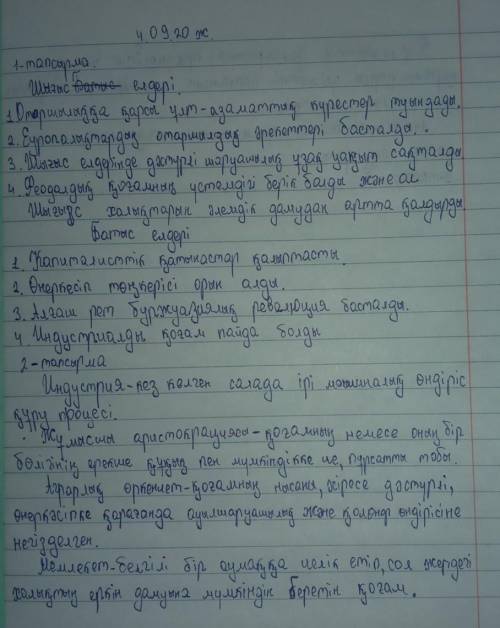 4.09.20 ж.
1-тапсырма.
Шығыс Батыс елдері.
1. Отаршылыққа қарсы ұлт-азаматтық күрестер туындады.
2. Еуропалықтардың отаршылдық әрекеттері басталды.
3. Шығыс елдерінде дәстүрлі шаруашылық ұзақ уақыт сақталды
4. Феодалдық қоғамның үстемдігі берік болды және ол
Шығыс халықтарын әлемдік дамудан артта қалдырды.
Батыс елдері
1. Капиталисттік қатынастар қалыптасты.
2. Өнеркәсіп төңкерісі орын алды.
3. Алғаш рет буржуазиялық революция басталды.
4. Индустриалды қоғам пайда болды
2-тапсырма
Индустрия-кез келген салада ірі машиналық өндіріс
құру процесі.
Жұмысшы аристокрациясы-қоғамның немесе оның бір
бөлігінің ерекше құқық пен мүмкіндікке ие, пұрсатты тобы.
Аграрлық өркениет-қоғамның нысаны, әсіресе дәстүрлі,
өнеркәсіпке қарағанда ауылшаруашылық және қолөнер өндірісіне
негізделген.
Мемлекет-белгілі бір аумаққа иелік етіп, сол жердегі
халықтың еркін дамуына мүмкіндік беретін қоғам.